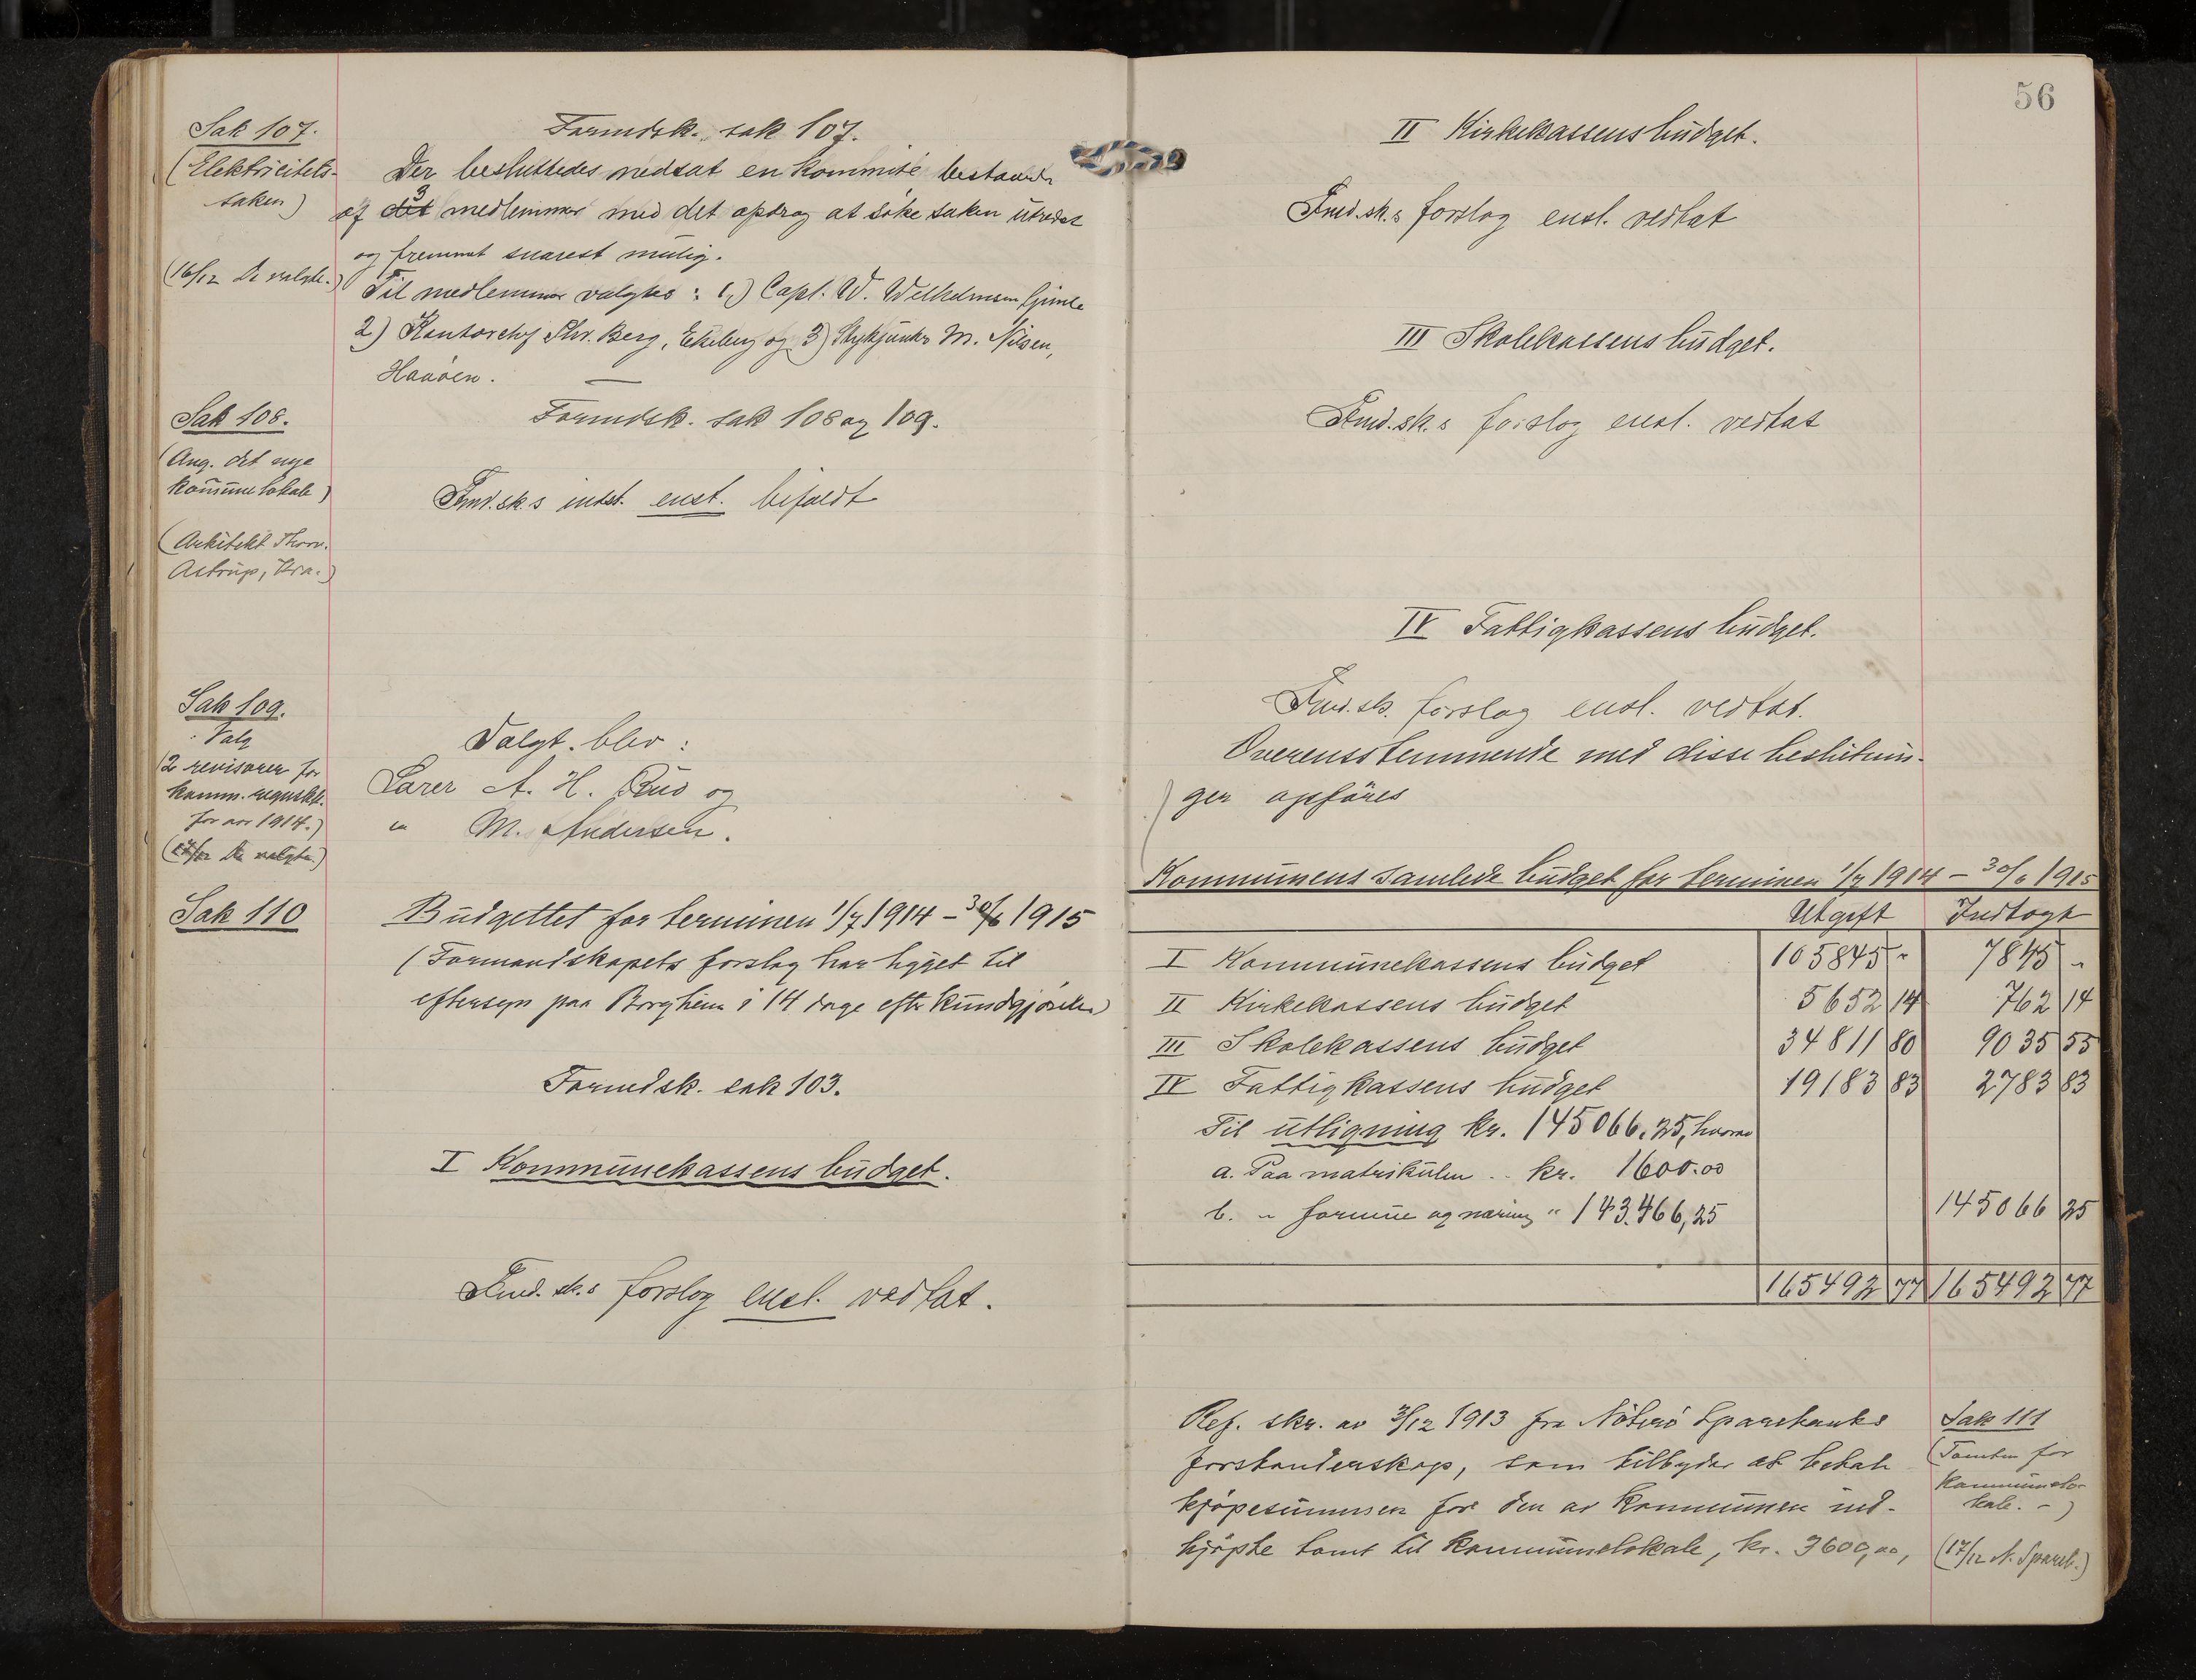 Sak 107.
(Elektricitets-
saken)
(16/12 De valgte.)
Formdsk. sak 107.
Der besluttedes nedsat en Kommité bestaaende
af 3 medlemmer med det opdrag at söke saken utredet
og fremmet snarest mulig.
Til medlemmer valgtes: 1.) Capt. W. Wilhelmsen Gimle
2) Kontorchef Thv. Berg, Ekeberg og 3) Skykjunker M. Nilsen,
Haaöen.
Sak 108.
(Ang. det nye
kommunelokale)
(Arkitekt Thorv.
Astrup, Kra.)
Formdsk. sak 108 og 109.
Fmd.sk.s indst. enst. bifaldt
Sak 109.
Valg
(2 revisorer for
komm. regnskb.
for aar 1914.)
(17/12 De valgte.)
Valgt blev:
Lærer A. H. Ruud og
" M. Andersen.
Sak 110
Budgettet for terminen 1/7 1914 – 30/6 1915
(Formandskapets forslag har ligget til
eftersyn paa Borgheim i 14 dage efter kundgjörelse)
Formdsk. sak 103.
I Kommunekassens budget.
Fmd.sk.s forslag enst. vedtat.
56
II Kirkekassens budget.
Fmd.sk.s forslag enst. vedtat
III Skolekassens budget.
Fmd.sk.s forslag enst. vedtat
IV Fattigkassens budget.
Fmd.sk. forslag enst. vedtat.
Overensstemmende med disse beslutnin-
ger opföres
Kommunens samlede budget for terminen 1/7 1914 – 30/6 1915
Utgift Indtægt
I Kommunekassens budget 105845 " 7845 "
II Kirkekassens budget 5652 14 762 14
III Skolekassens budget 34811 80 9035 55
IV Fattigkassens budget 19183 83 2783 83
Til utligning kr. 145066.25, hvorav
a. Paa matrikulen .. kr. 1600.00
b. " formue og næring " 143.466,25 145066 25
165492 77 165492 77
Ref. skr. av 3/12 1913 fra Nöterö Sparebanks
forstanderskap, som tilbyder at betale
kjöpesummen for den av kommunen ind-
kjöpte tomt til kommunelokale, kr. 3600,00,
Sak 111
(Tomten for
kommunelo-
kale. –)
(17/12 N. Spareb.)